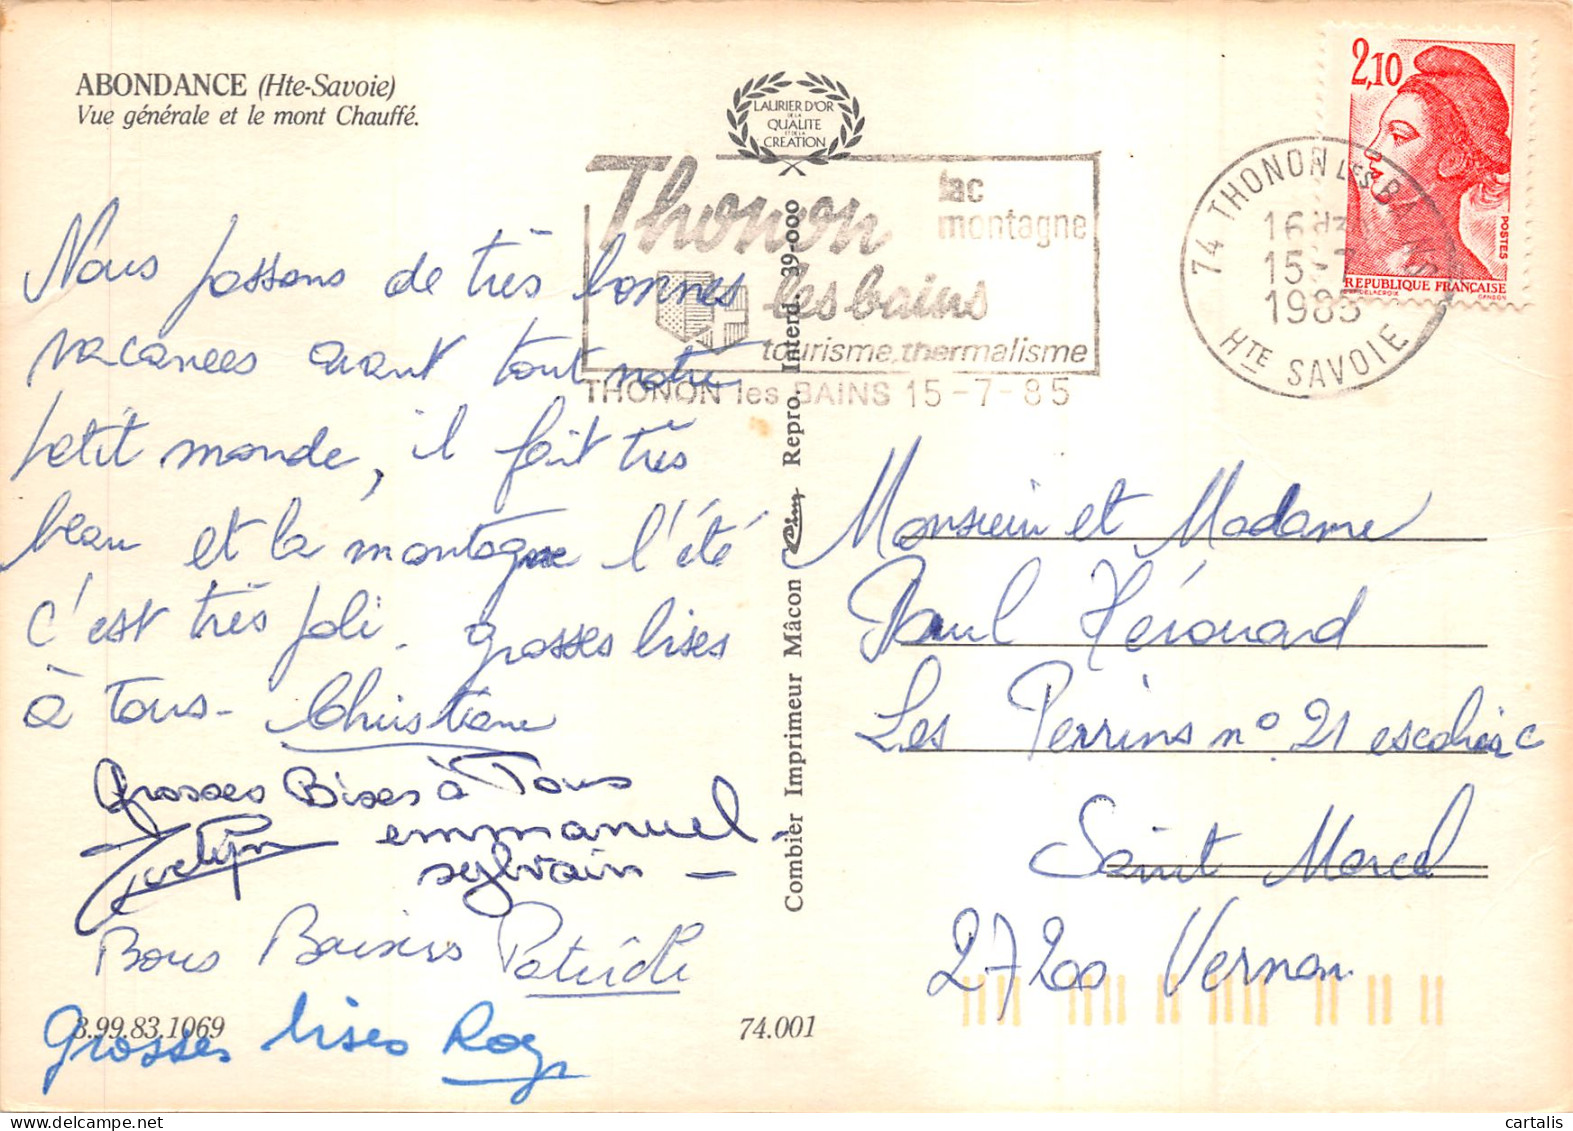 ABONDANCE (Hte-Savoie)
Vue générale et le mont Chauffé.
LAURIER D'OR
DE LA
QUALITE
ET DE LA
CREATION
Thonon
les bains
lac
montagne
tourisme, thermalisme
THONON les BAINS 15-7-85
2,10
POSTES
REPUBLIQUE FRANÇAISE
74 THONON LES BA
15-7
1985
HTE SAVOIE
Nous passons de très bonnes
vacances avant tout notre
petit monde, il fait très
beau et la montagne l'été
c'est très joli. grosses bises
à tous - Christiane
Grosses Bises à Tous
Jocelyn emmanuel -
sylvain -
Bons Baisers Patrick
Grosses bises Roger
3.99.83.1069
74.001
Combier Imprimeur Mâcon Cim Repro. Interd. 39-000
Monsieur et Madame
Paul Hérouard
Les Perrins n° 21 escalier C
Saint Marcel
27200 Vernon
cartalis.com